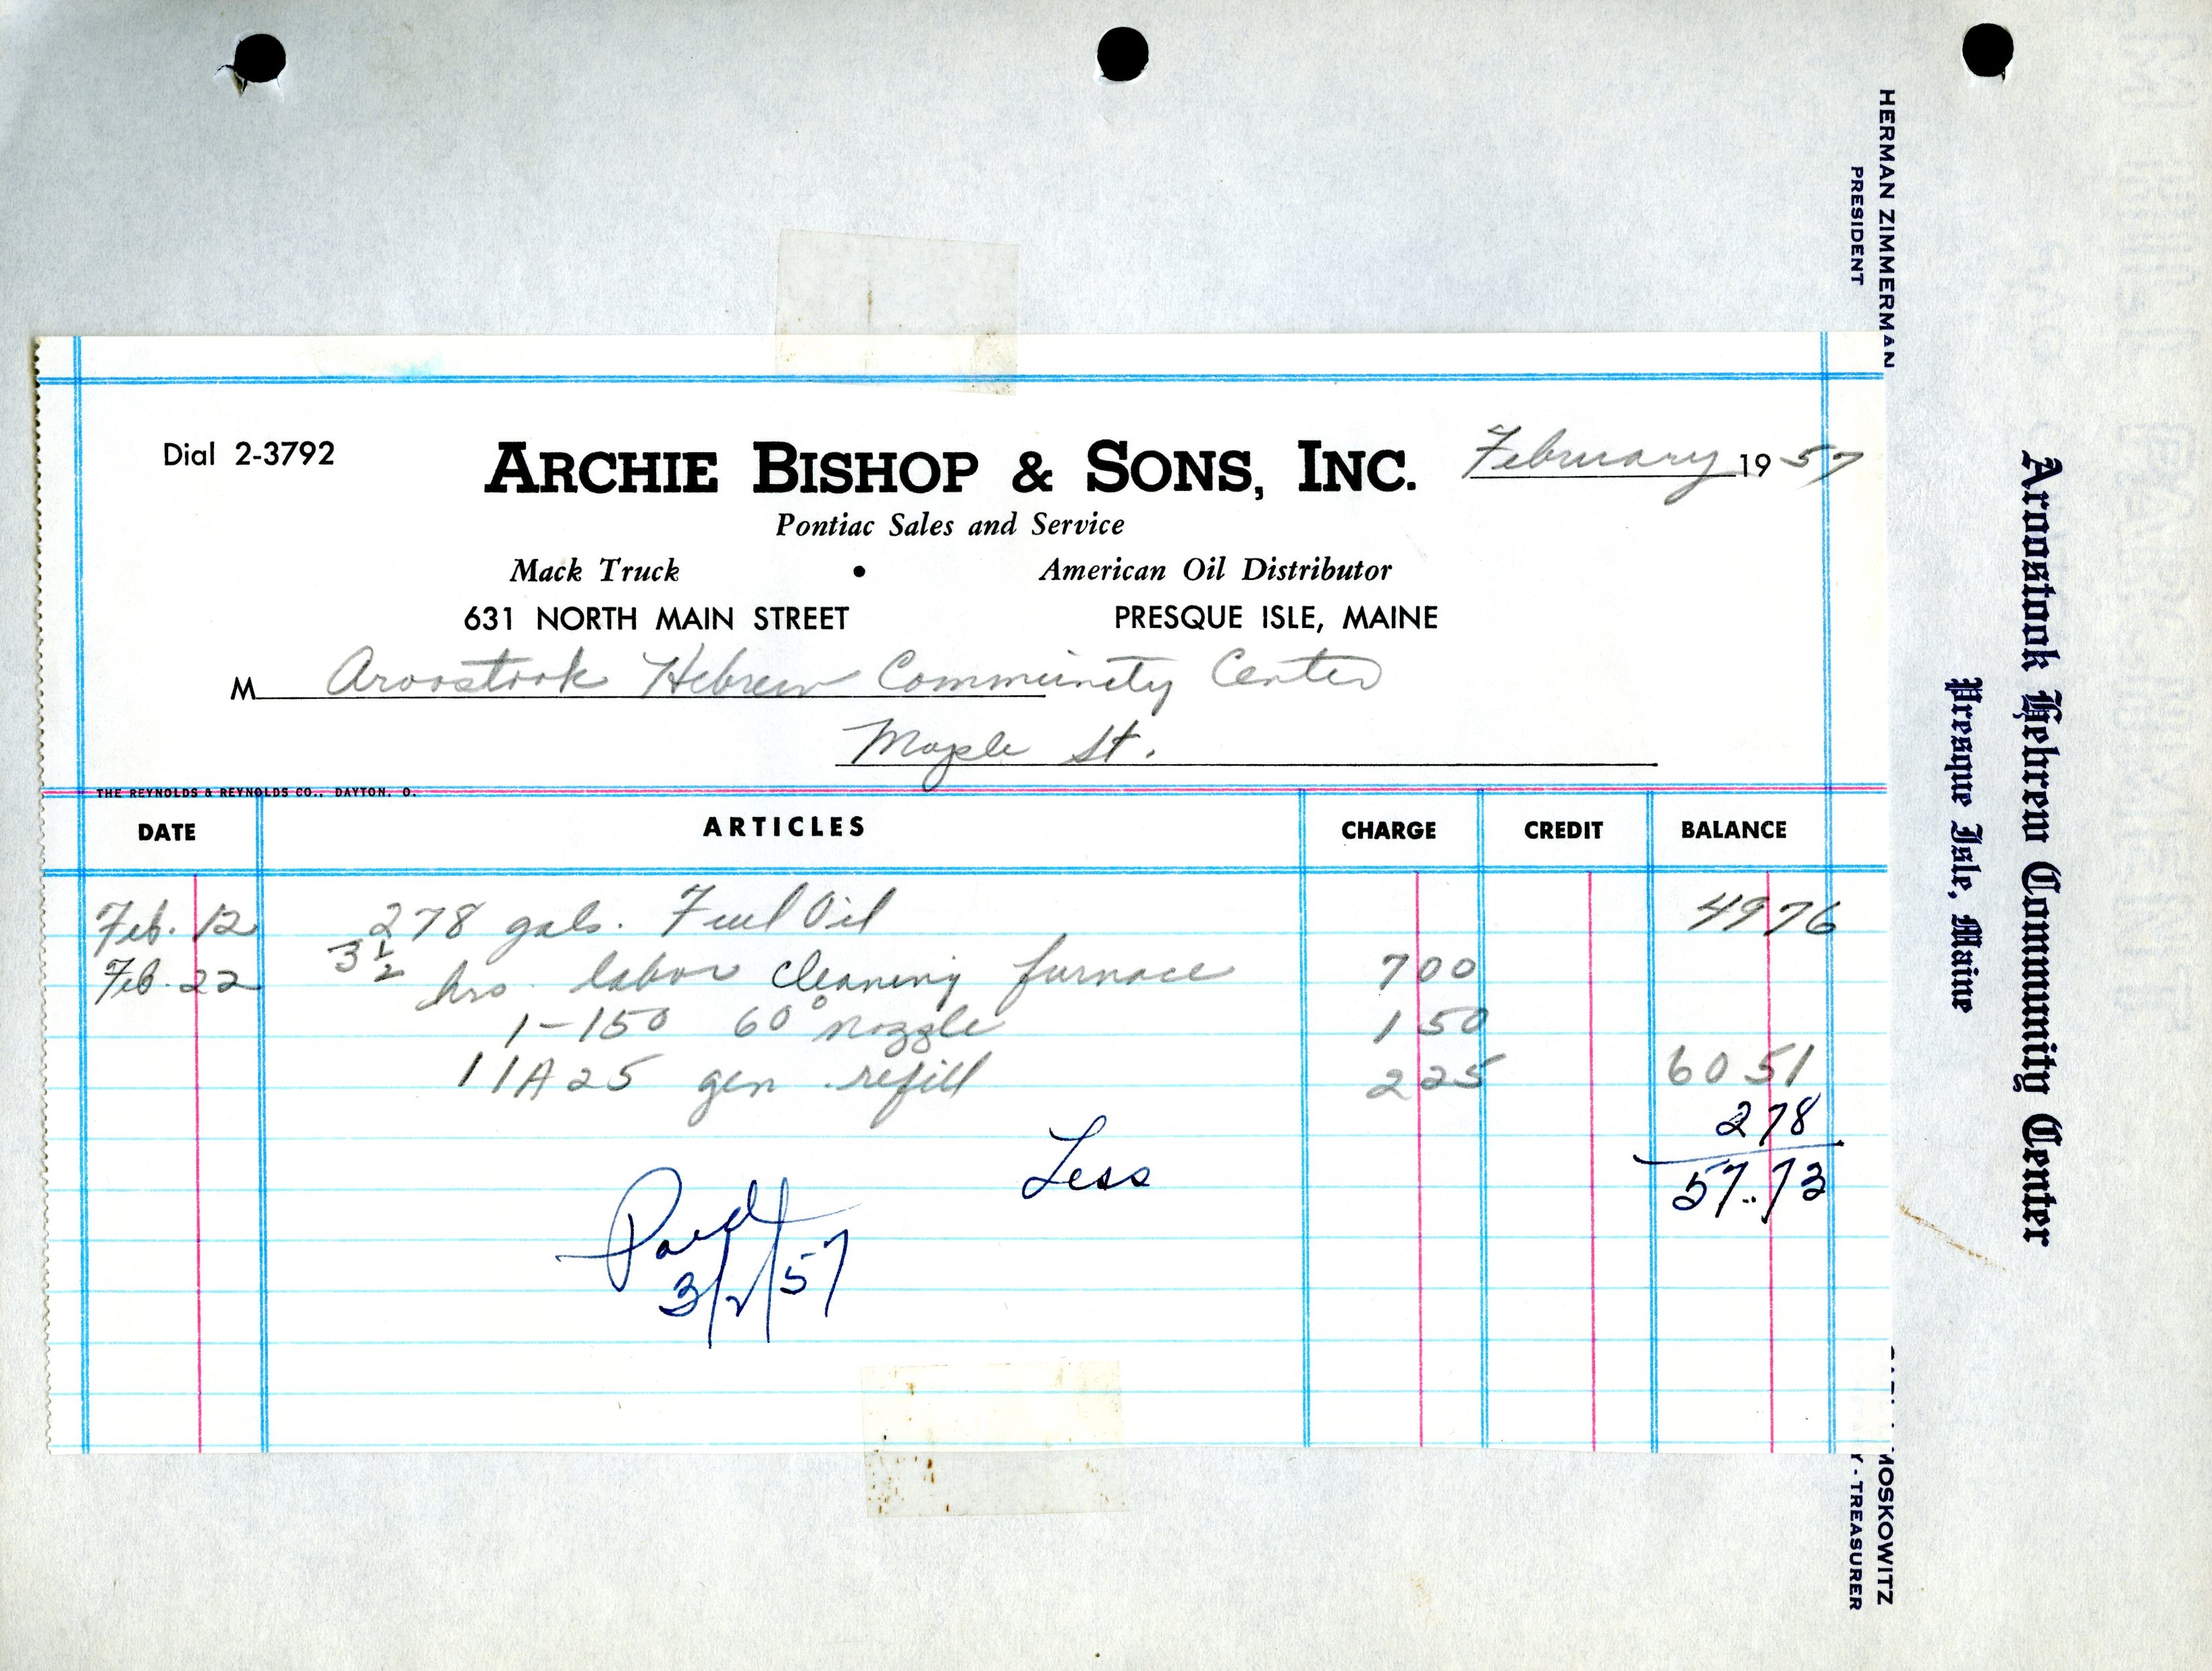 HERMAN ZIMMERMAN
PRESIDENT
Aroostook Hebrew Community Center
Presque Isle, Maine
MOSKOWITZ
Y-TREASURER
Dial 2-3792
ARCHIE BISHOP & SONS, INC.
February 19 57
Pontiac Sales and Service
Mack Truck • American Oil Distributor
631 NORTH MAIN STREET PRESQUE ISLE, MAINE
M Aroostook Hebrew Community Center
Maple St.
THE REYNOLDS & REYNOLDS CO., DAYTON, O.
DATE ARTICLES CHARGE CREDIT BALANCE
Feb. 12 278 gals. Fuel Oil 4976
Feb. 22 3 1/2 hrs. labor cleaning furnace 700
1-150 60° nozzle 150
1 1A25 gen. refill 225 6051
278
Less 57.73
Paid
3/2/57